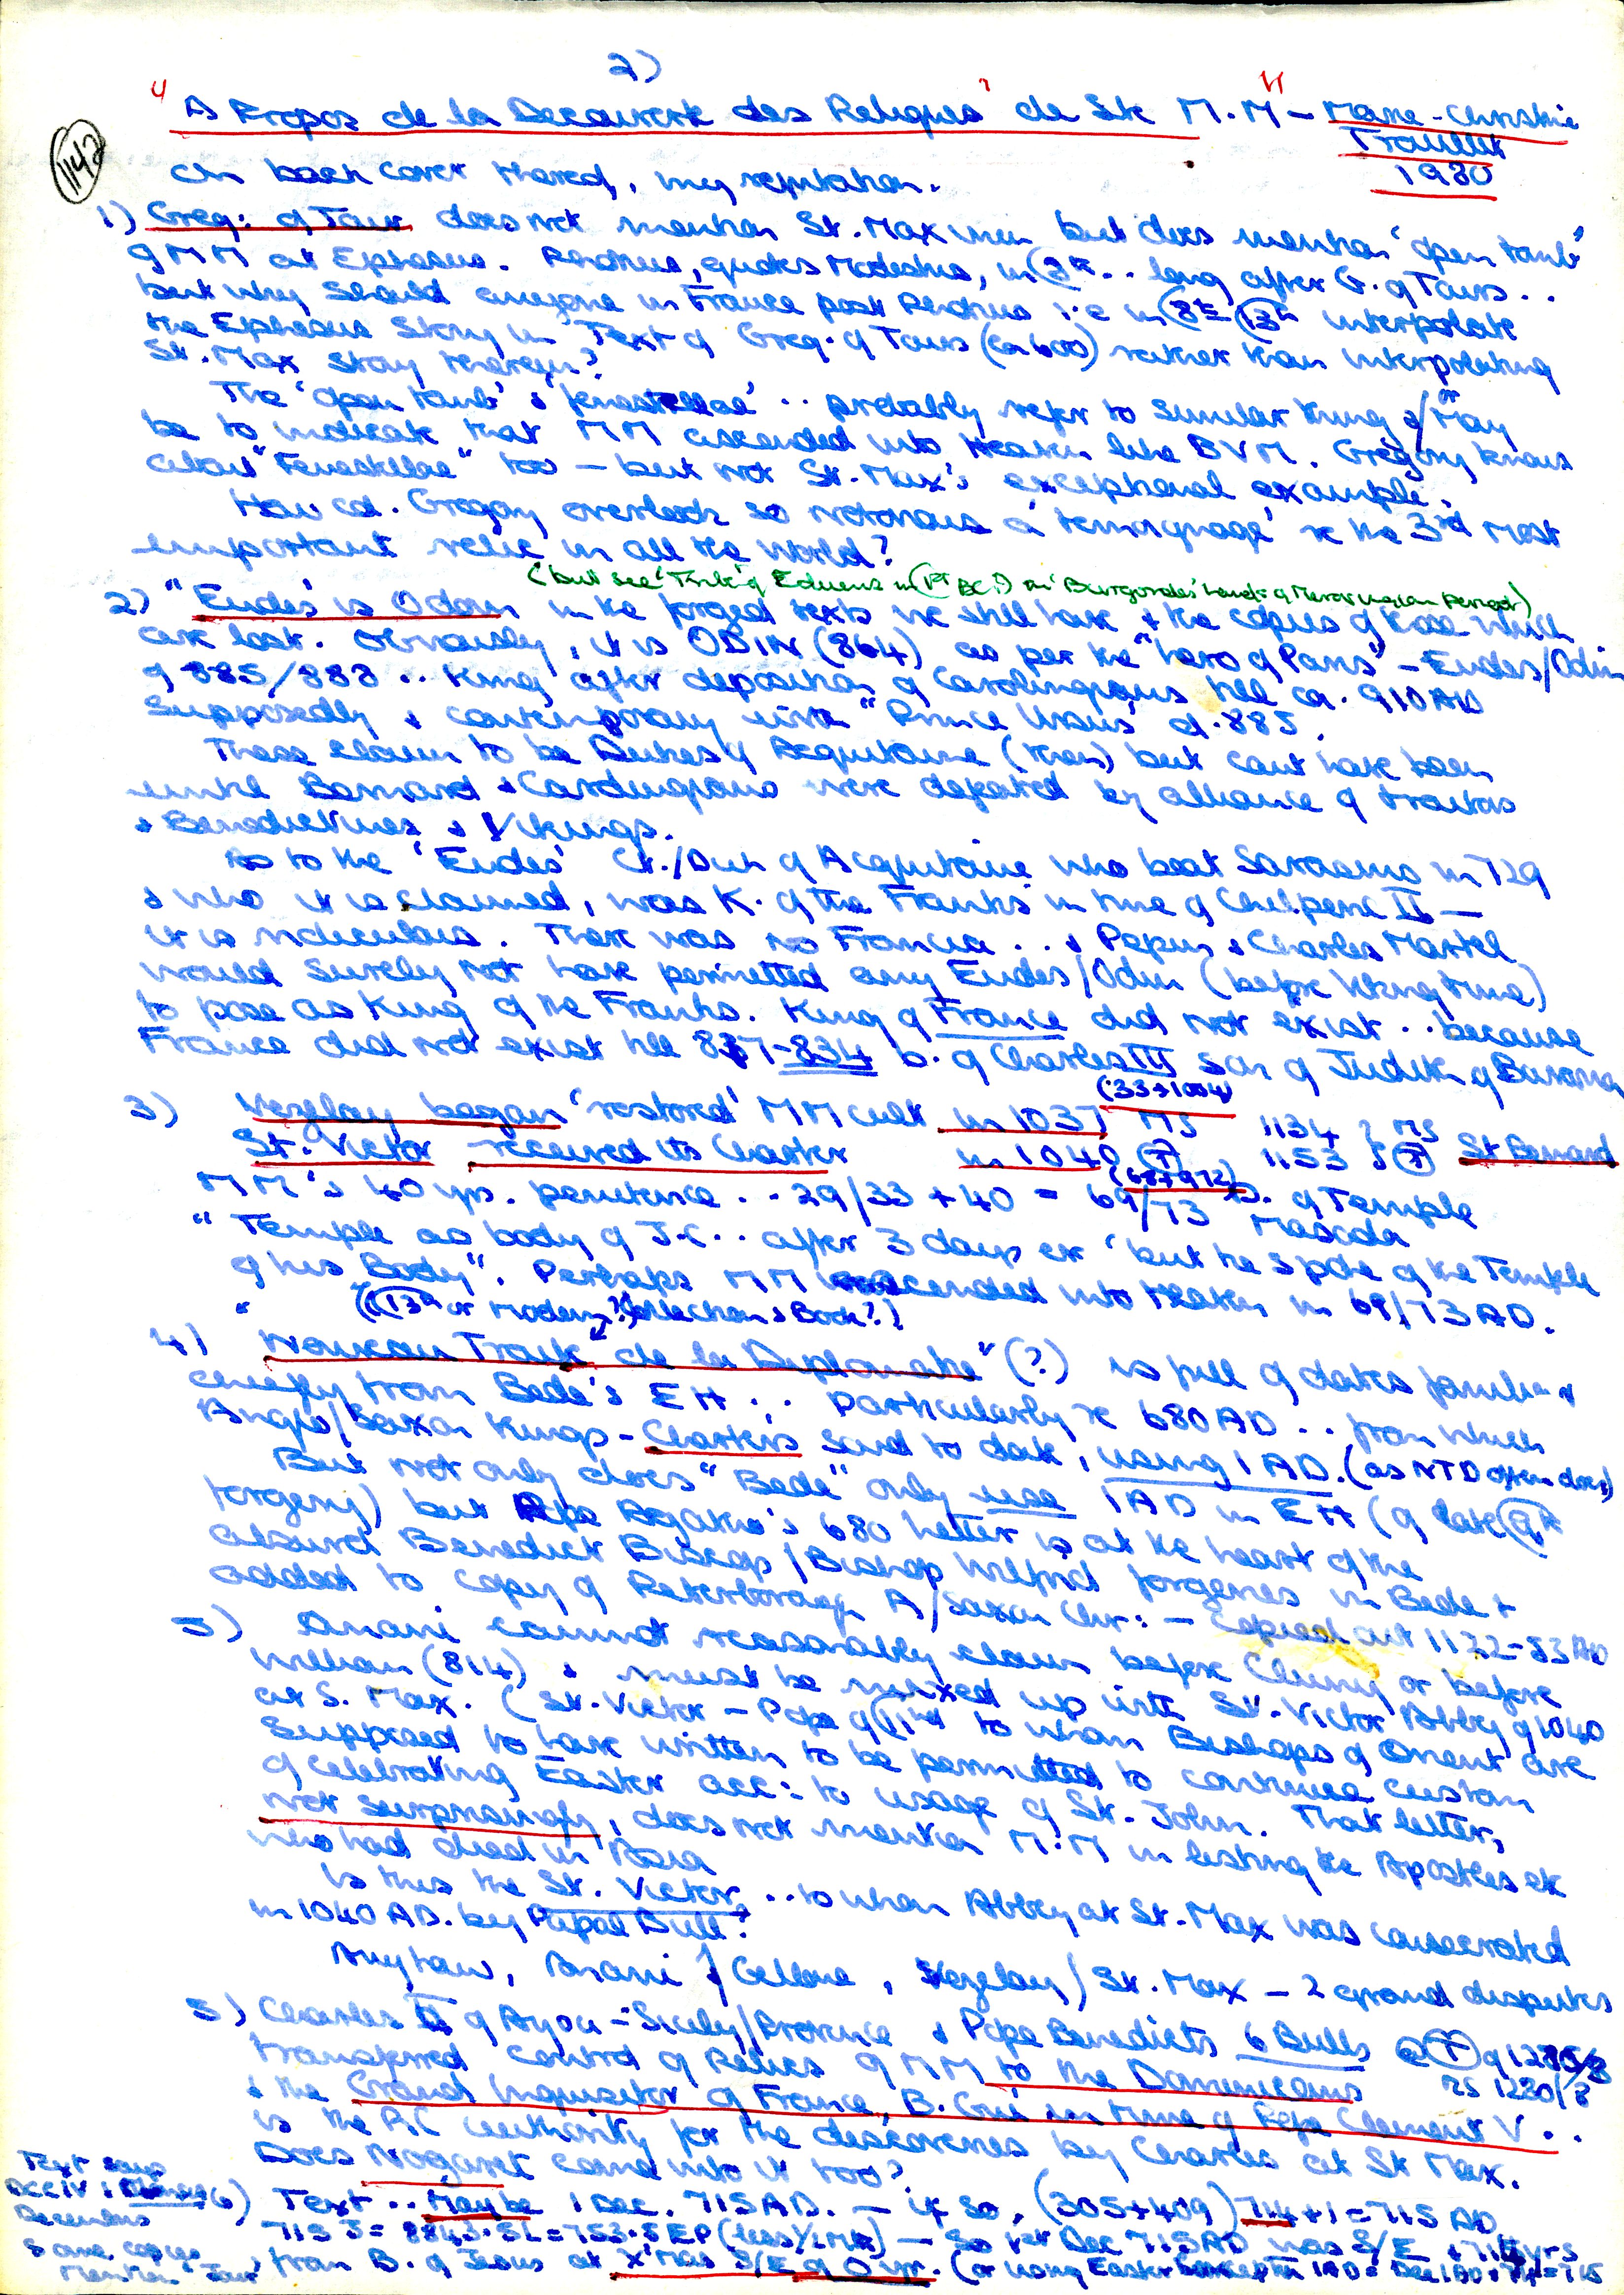 2)
"A Propos de la Decouverte des Reliques" de Ste M.M" - Marie-Christine
1142
1980
On back cover thereof, my refutation.
1) Greg: of Tours does not mention St. Maximin but does mention 'open tomb'
of MM at Ephesus. Photius, quotes Modestus, in long after G. of Tours ..
but why should anyone in France post Photius i.e in 8th 13th interpolate
the Ephesus Story in Text of Greg. of Tours (ca 600) rather than interpolating
St. Max story therein?
The 'open tomb' & 'fenestellae' .. probably refer to similar thing / or May
be to indicate that MM ascended into Heaven like BVM. Gregory knows
about "Fenestellae" too - but not St. Max's exceptional example.
How cd. Gregory overlook so notorious a 'temoignage' re the 3rd Most
important relic in all the world?
(but see in (1st BC?) in 'Burgondes' of Merovingian Period)
2) "Eudes' is Odon in the forged texts we still have & the copies of those which
are lost. Obviously, it is ODIN (864) as per the "hero of Paris" - Eudes/Odin
of 885/888 .. King after deposition of Carolingians till ca. 910 AD
Supposedly & contemporary with "Prince Ursus" d. 885.
These claim to be Dukes of Acquitaine (then) but cant have been
until Bernard & Carolingians were defeated by alliance of traitors
& Benedictines & Vikings.
As to the 'Eudes' Ct./Duk of Acquitaine who beat Saracens in 729
& who it is claimed, was K. of the Franks in time of Chilperic II -
it is rediculous. There was no Francia ... & Pepin & Charles Martel
would surely not have permitted any Eudes/Odin (before Viking time)
to pose as King of the Franks. King of France did not exist .. because
France did not exist till 837-834 b. of Charles III son of Judith of Bavaria
(33+1004)
3) Vezelay began 'restored' MM cult in 1037 MS 1134 } MS
St. Victor received its Charter in 1040 (T) 1153 } (T) St Bernard
MM's 40 yrs. penitence .. 29/33 + 40 = 69/73 D. of Temple
Masada
"Temple as body of J.C. .. after 3 days or 'but he spoke of the Temple
of his Body". Perhaps MM ascended into Heaven in 69/73 AD.
(13th or Modern? Collection & Book?)
4) "Nouveau Traite de la Diplomatie" (?) is full of dates familiar
chiefly from Bede's EH .. Particularly re 680 AD .. from which
Anglo/Saxon Kings - Charters said to date, using 1 AD. (as NTD often does)
But not only does "Bede" only use 1 AD in EH (of late 9th
forgery) but Pope Agatho's 680 letter is at the heart of the
absurd Benedict Biscop/Bishop Wilfrid forgeries in Bede &
added to copy of Peterborough A/Saxon Chr: - Copied out 1122-53 AD
5) Aniani cannot reasonably claim before Cluny or before
William (814) & must be mixed up with St. Victor Abbey of 1040
at S. Max. (St. Victor - Pope of 11nd to whom Bishops of Orient are
supposed to have written to be permitted to continue custom
of celebrating Easter acc: to usage of St. John. That letter,
not surprisingly, does not mention M.M in listing the Apostles etc
who had died in Asia
Is this the St. Victor .. to whom Abbey at St. Max was consecrated
in 1040 AD. by Papal Bull?
Anyhow, Aniani / Gellone, Vezelay / St. Max - 2 grand disputes
5) Charles II of Anjou - Sicily/Provence & Pope Benedicts 6 Bulls
transferred control of Relics of MM to the Dominicans MS 1280/3
& the Grand Inquisitor of France, B. Gui in time of Pope Clement V ..
is the RC authority for the discoveries by Charles at St Max.
Does Nogaret come into it too?
6) Text .. Maybe 1 Dec. 715 AD. - if so, (305+409) 714+1 = 715 AD
715 J = - So 1st Dec 715 AD was S/E
from B. of Jesus at X'mas S/E of 0 yr.
Text says
Decembris
Some copies
Mention